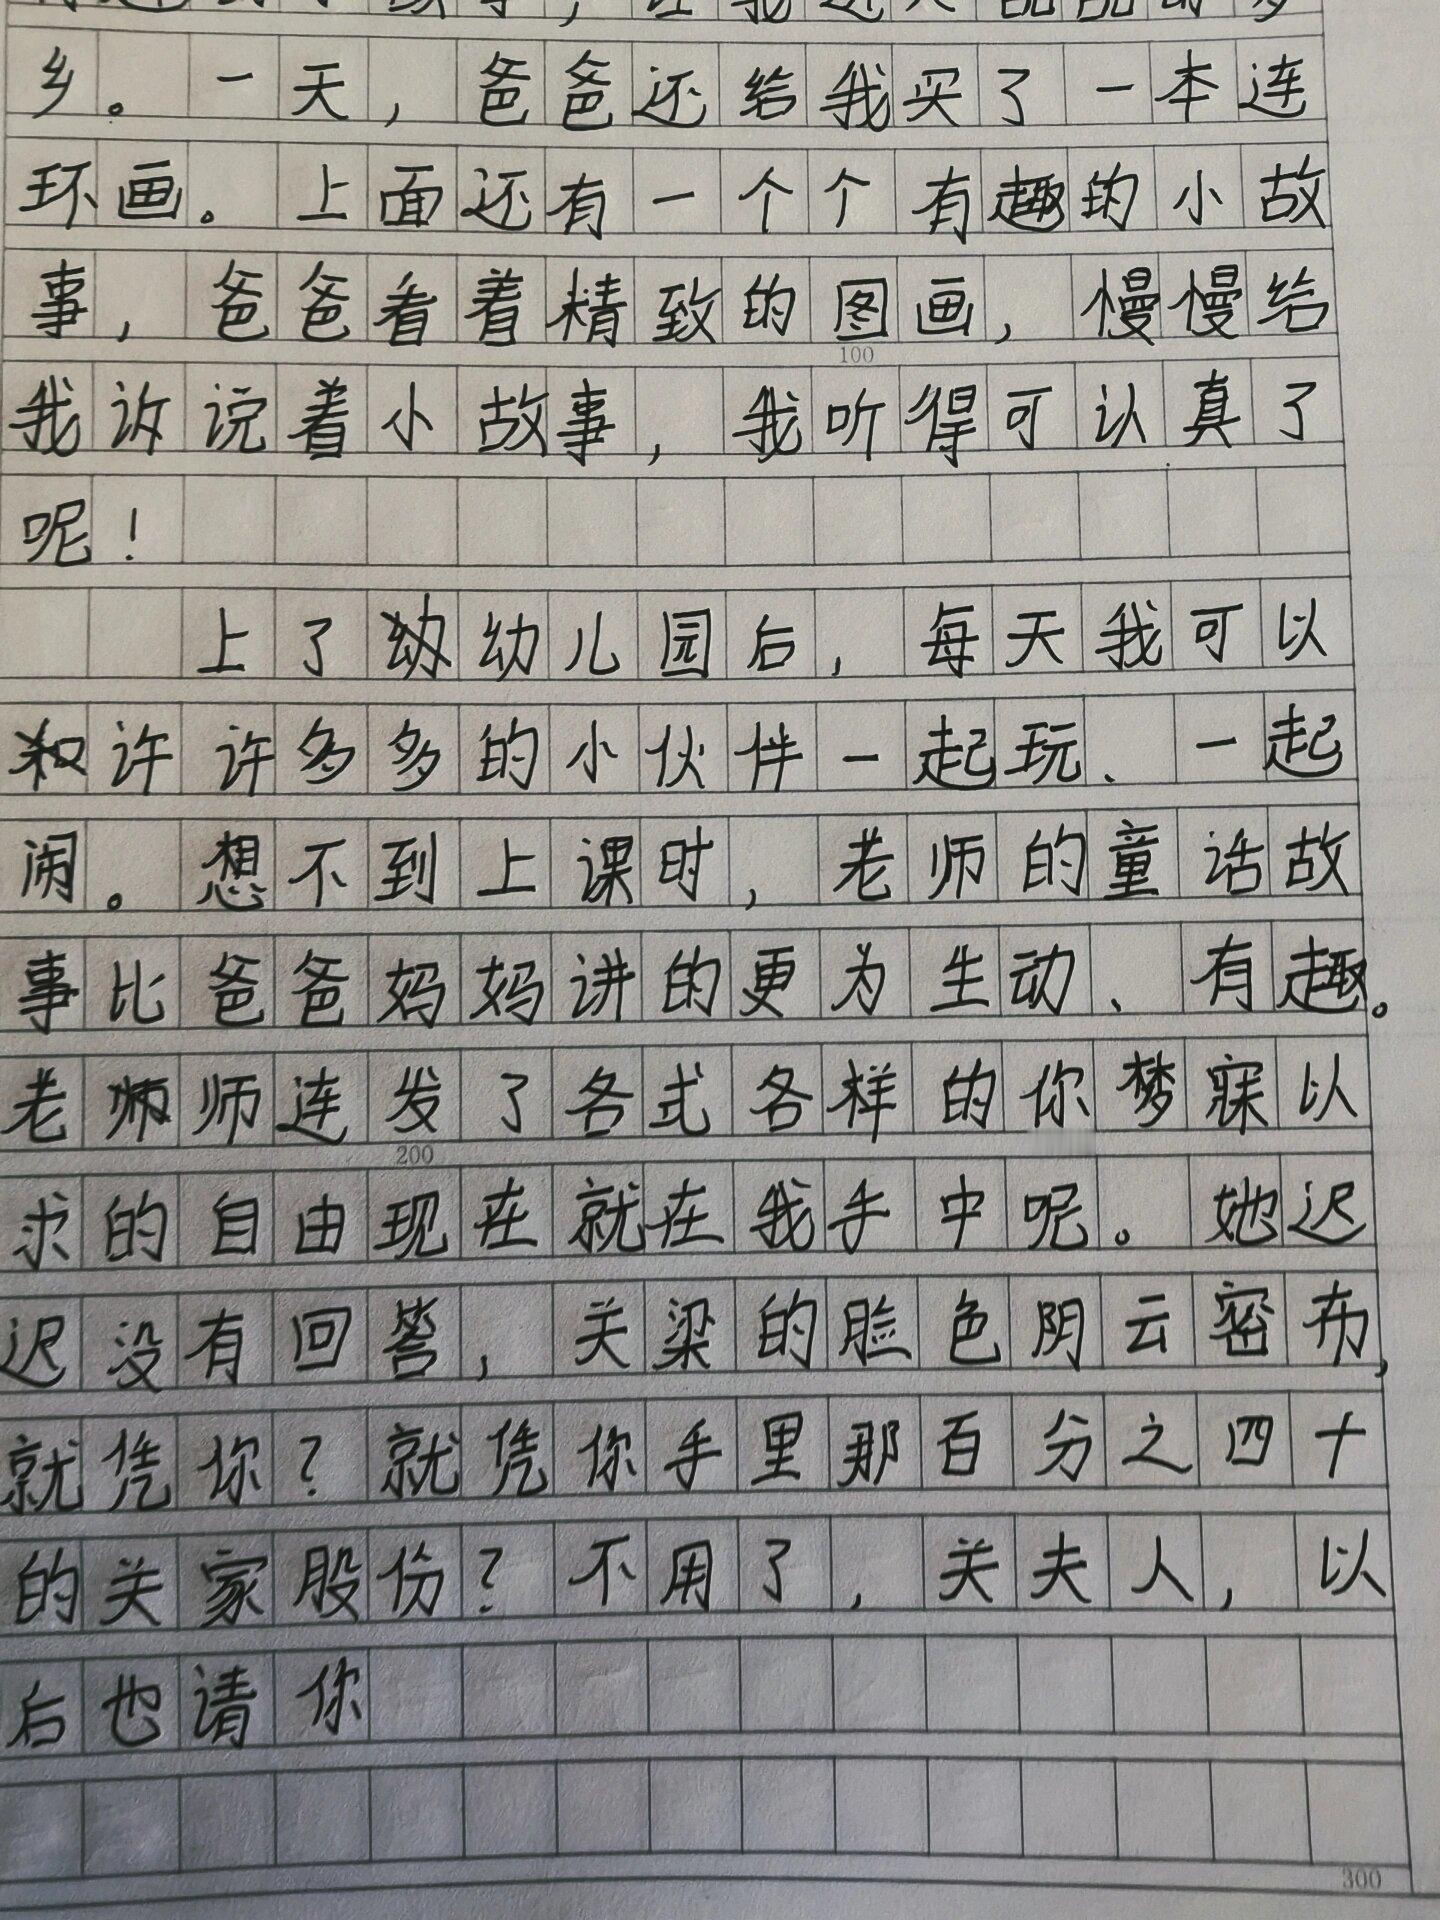 乡。一天，爸爸还给我买了一本连
环画。上面还有一个个有趣的小故
事，爸爸看着精致的图画，慢慢给
我诉说着小故事，我听得可认真了
呢！
100
上了幼儿园后，每天我可以
和许许多多的小伙伴一起玩、一起
闹。想不到上课时，老师的童话故
事比爸爸妈妈讲的更为生动、有趣。
老师连发了各式各样的你梦寐以
200
求的自由现在就在我手中呢。她迟
迟没有回答，关梁的脸色阴云密布，
就凭你？就凭你手里那百分之四十
的关家股份？不用了，关夫人，以
后也请你
300